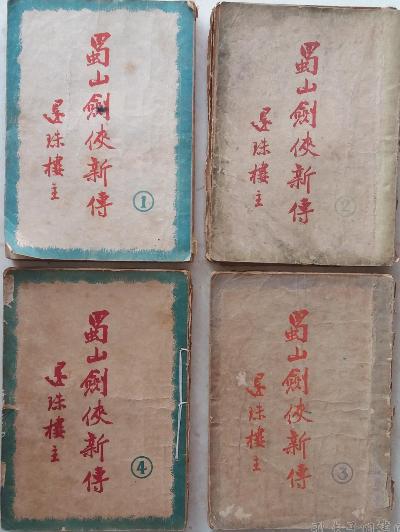 蜀山劍俠新傳
還珠樓主
1
蜀山劍俠新傳
還珠樓主
2
蜀山劍俠新傳
還珠樓主
4
蜀山劍俠新傳
還珠樓主
3